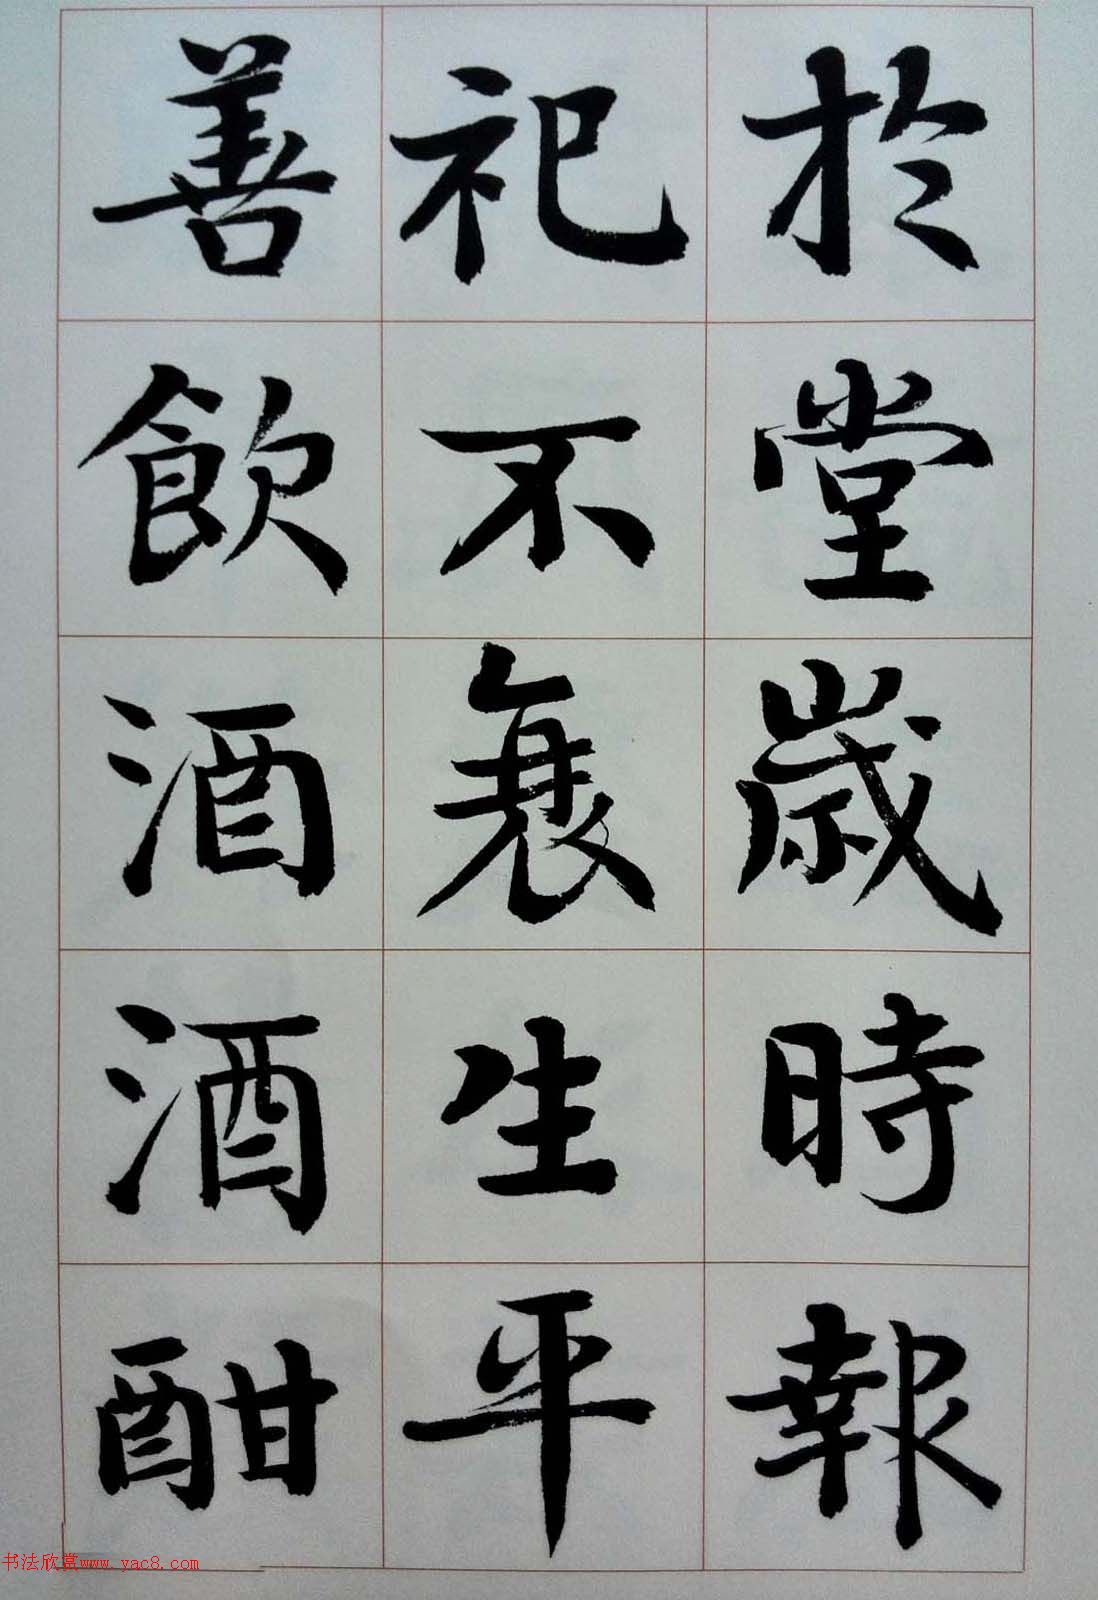 於堂歲時報
祀不衰生平
善飲酒酒酣
书法欣赏www.yac8.com